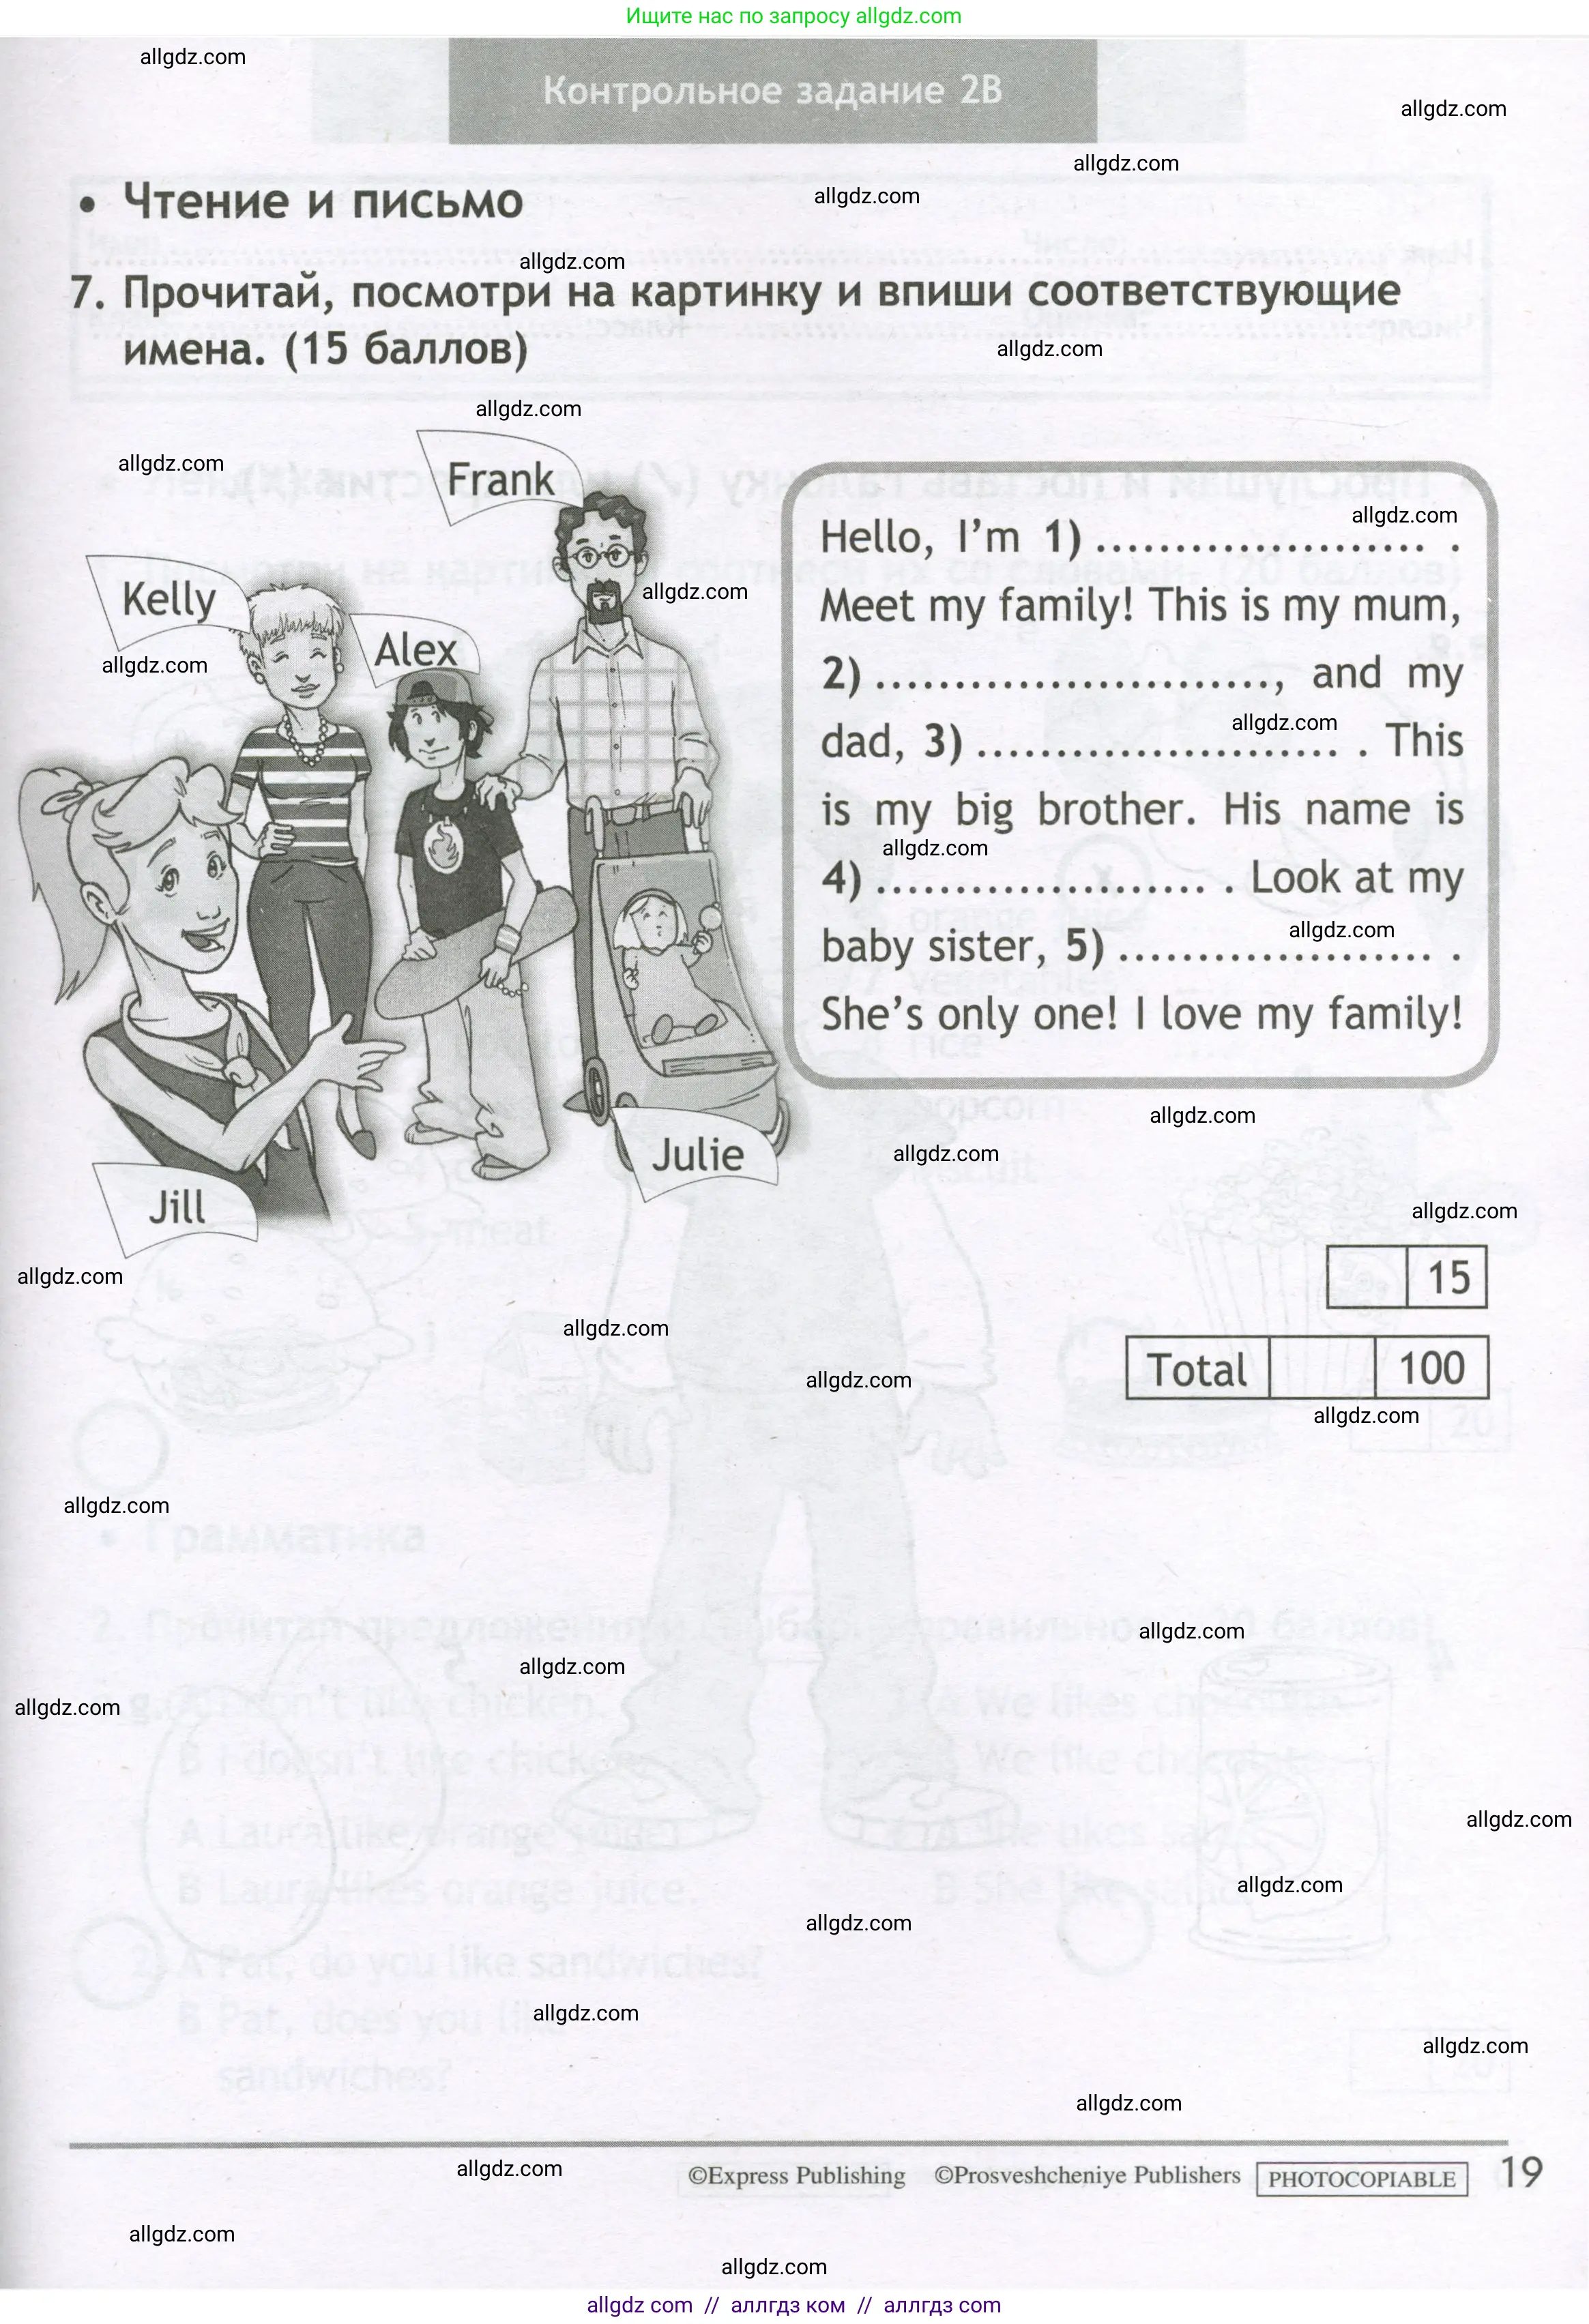 Ищите нас по запросу allgdz.com
allgdz.com
Контрольное задание 2B
allgdz.com
allgdz.com
• Чтение и письмо
allgdz.com
allgdz.com
7. Прочитай, посмотри на картинку и впиши соответствующие
имена. (15 баллов)
allgdz.com
allgdz.com
allgdz.com
Frank
Kelly
Alex
allgdz.com
allgdz.com
Jill
Julie
allgdz.com
Hello, I'm 1) ..................... .
Meet my family! This is my mum,
2) ........................., and my
allgdz.com
dad, 3) ....................... . This
is my big brother. His name is
allgdz.com
4) ..................... . Look at my
allgdz.com
baby sister, 5) .................... .
She's only one! I love my family!
allgdz.com
allgdz.com
allgdz.com
allgdz.com
15
allgdz.com
Total 100
allgdz.com
allgdz.com
allgdz.com
allgdz.com
allgdz.com
allgdz.com
allgdz.com
allgdz.com
allgdz.com
allgdz.com
allgdz.com
allgdz.com
allgdz.com
allgdz.com
©Express Publishing ©Prosveshcheniye Publishers PHOTOCOPIABLE 19
allgdz.com
allgdz.com
allgdz com // аллгдз ком // аллгдз com